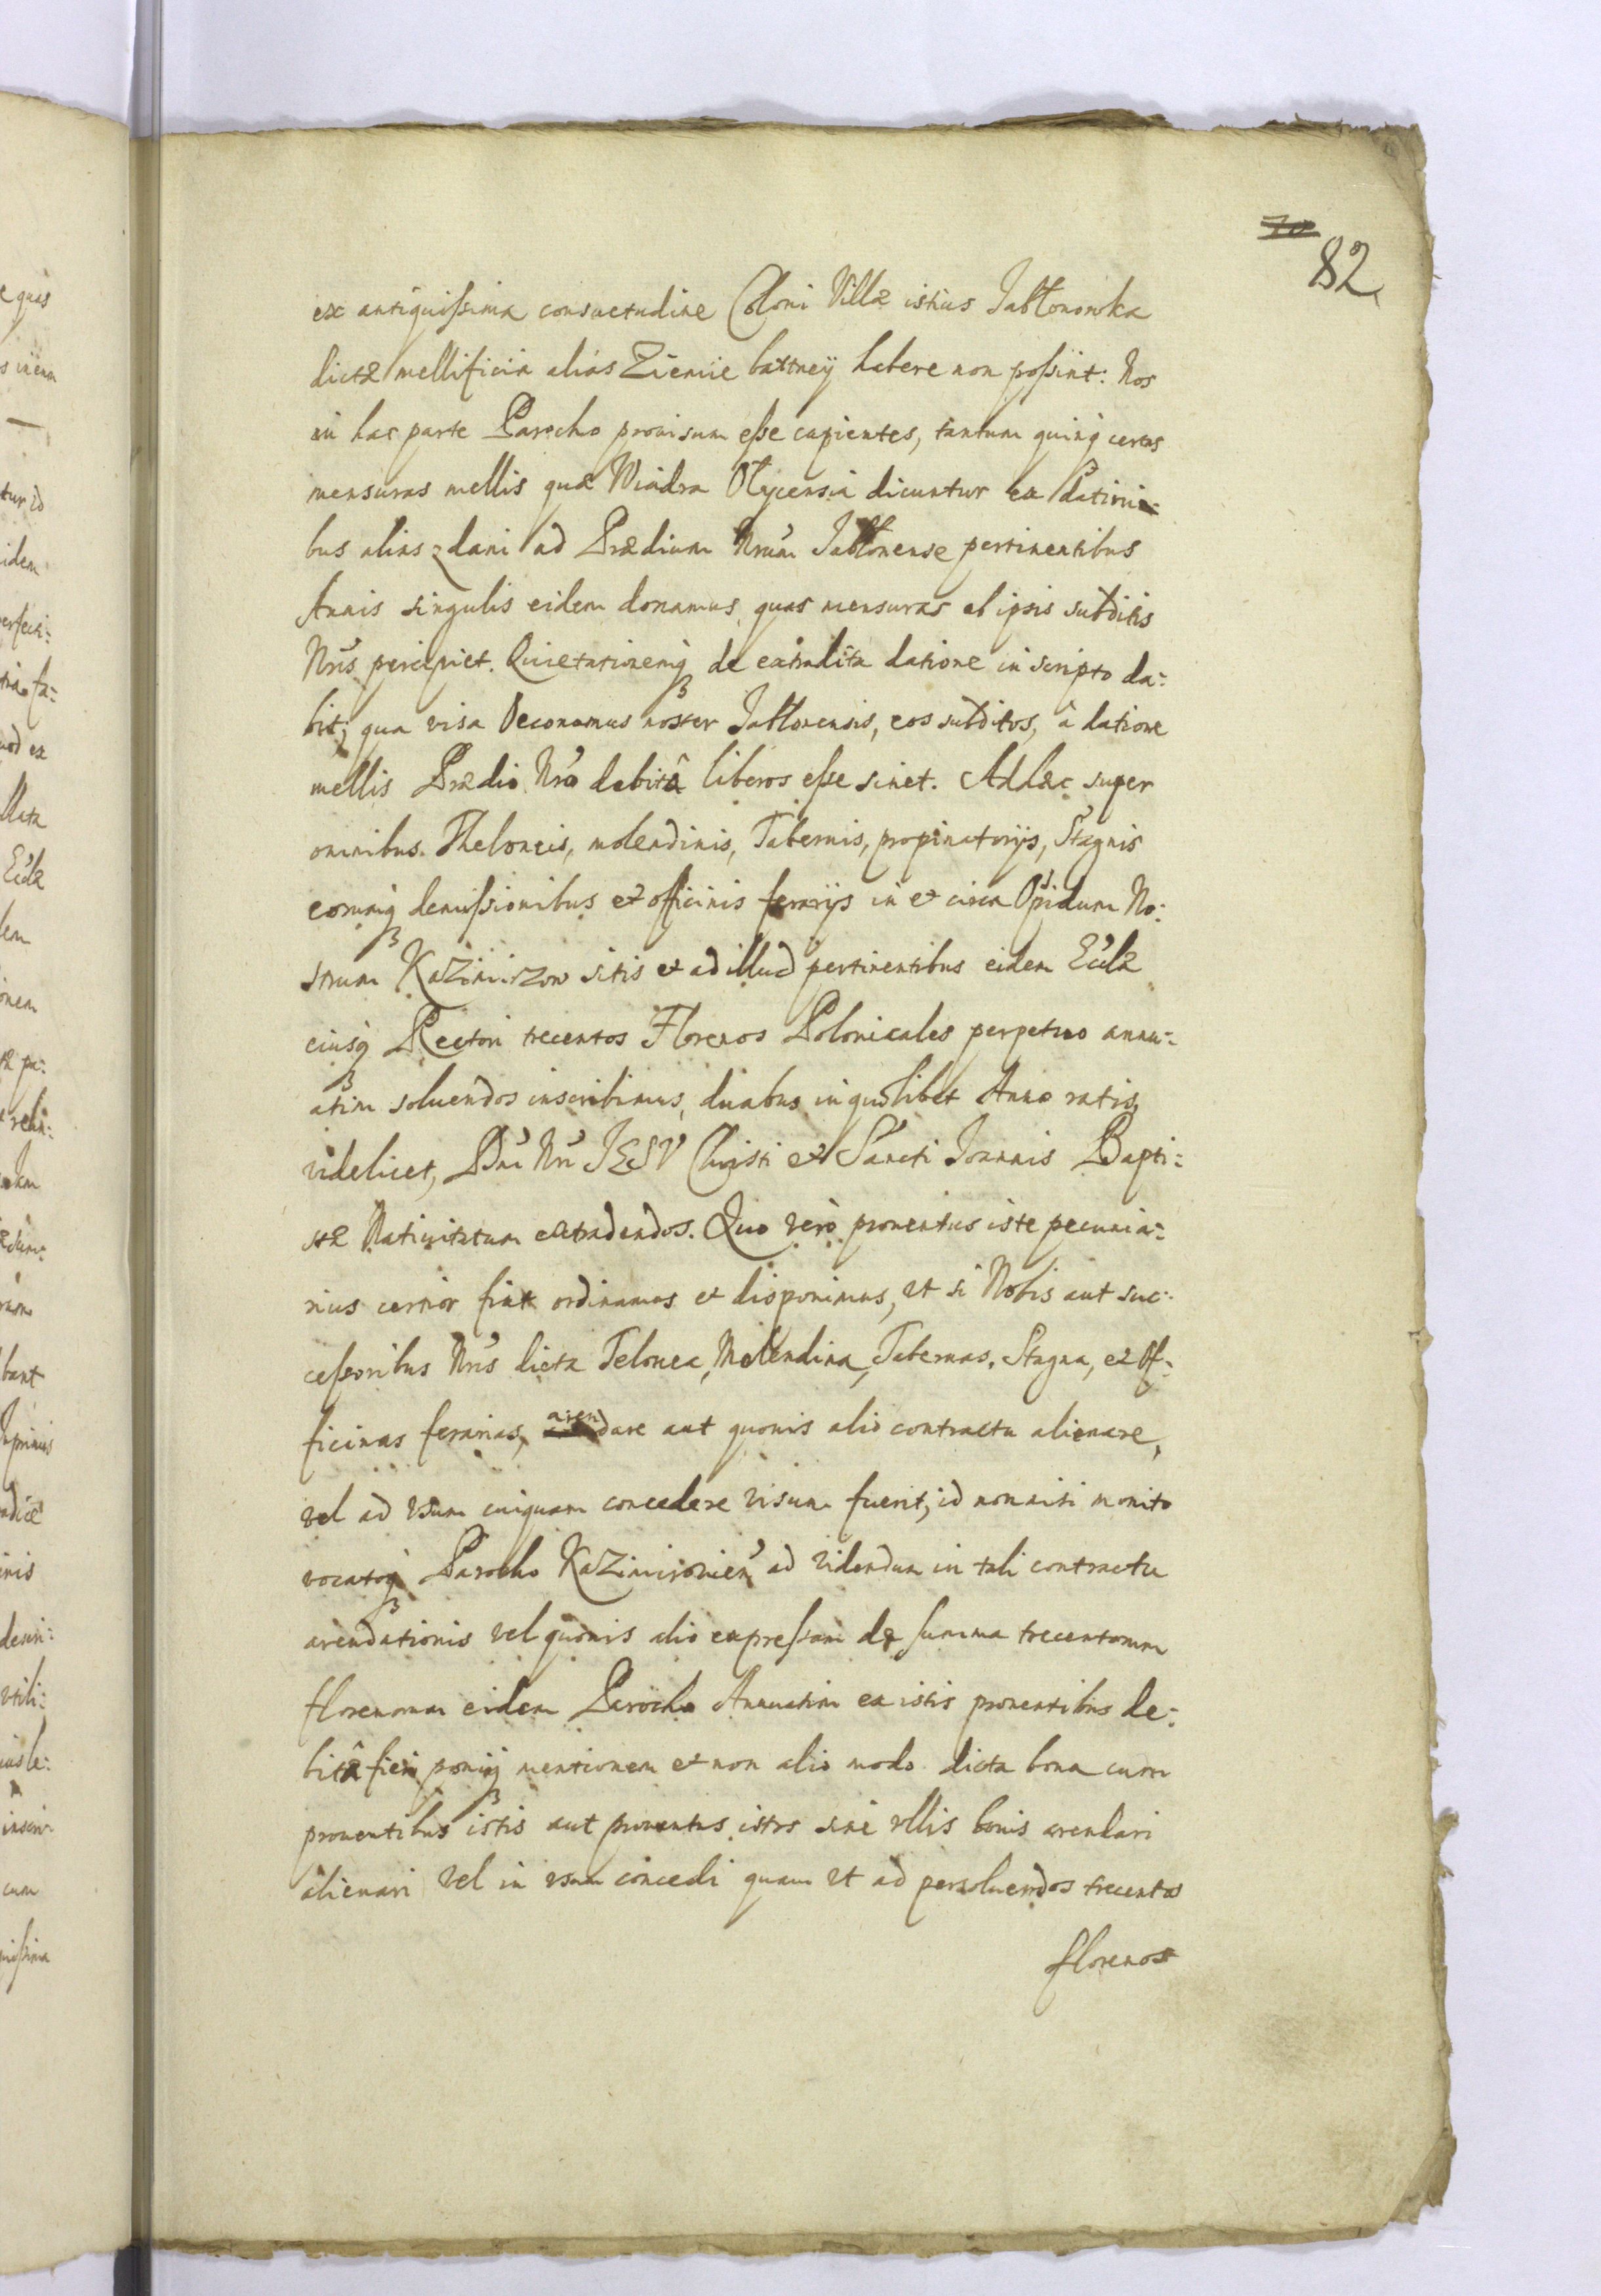 70
82
ex antiquissima consuetudine Coloni Villæ istius Jabłonowka
dictæ mellificia aliàs Ziemie bartney habere non possint: Nos
in hac parte Parocho provisum esse cupientes, tantum quinq certas
mensuras mellis quæ Wiadra Olycensia dicuntur ex Dationi-
bus alias z dani ad Prædium Nrum Jabłonense pertinentibus
Annis singulis eidem donamus, quas mensuras ab ipsis subditis
Nris percipiet. Quietationemq de extradita datione in scripto da:
bit; qua visa Oeconomus noster Jabłonensis, eos subditos, à datione
mellis Prædio Nro debitâ liberos esse sinet. Ad hæc super
omnibus Theloneis, molendinis, Tabernis, propinatorijs, Stagnis
eorumq demissionibus et officinis ferarijs in et circa Opidum No:
strum Kazimirzow sitis et ad illud pertinentibus eidem Ecclæ
eiusq Rectori trecentos Florenos Polonicales perpetuo annu:
atim soluendos inscribimus, duabus in quolibet Anno ratis,
videlicet, Dni Nri JESV Christi et Sancti Joannis Bapti:
stæ Natiuitatum extradendos. Quo verò prouentus iste pecunia:
rius certior fiat ordinamus et disponimus, vt si Nobis aut suc:
cessoribus Nris dicta Telonea, Molendina, Tabernas, Stagna, et Of:
ficinas ferarias, arendare aut quouis alio contractu alienare,
vel ad vsum cuiquam concedere visum fuerit, id non nisi monito
vocatoq Parocho Kazimirouien ad videndum in tali contractu
arendationis vel quouis alio expressam de summa trecentorum
florenorum eidem Parocho Annuatim ex istis prouentibus de:
bitâ fieri poniq mentionem et non alio modo dicta bona cum
prouentibus istis aut prouentus istos sine vllis bonis arendari
alienari vel in vsum concedi quam vt ad persoluendos trecentos
florenos